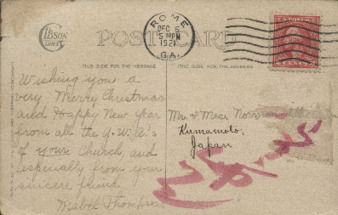 ROME
DEC 8
5 PM
192
GA.
Gibson Lines
POST CARD
THIS SIDE FOR THE MESSAGE
THIS SIDE FOR THE ADDRESS
Wishing you a
very Merry Christmas
and Happy New Year
from all the Y.W.A.'s
of your Church and
especially from your
sincere friend
Mabel Thompson
Mr. & Mrs. Norman
Kumamoto,
Japan